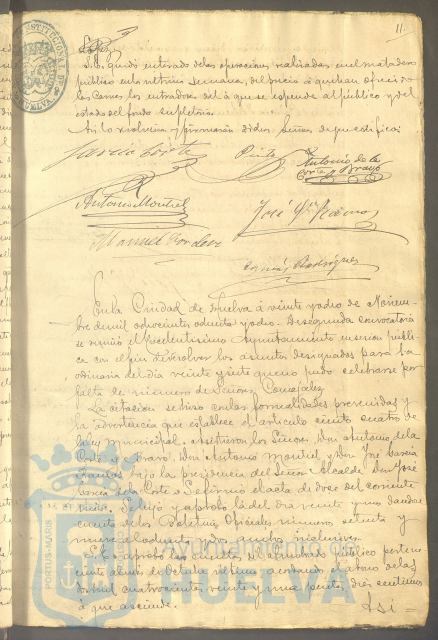 11.
S.E. quedó enterado de las operaciones realizadas en el matadero
público en la última semana, del precio á que han ofrecido
las carnes los entradores del á que se expende al público y del
estado del fondo supletorio.
Así lo resolvieron y firmarán dichos Señores de que certifico.
García Corte
Pinto
Antonio de la
Corte y Bravo
Antonio Montiel
José Gª Ramos
Manuel
Rodríguez
En la Ciudad de Huelva á veinte y ocho de Noviem-
bre de mil ochocientos ochenta y ocho. De segunda convocatoria
se reunió el Excelentísimo Ayuntamiento en sesión públi-
ca con el fin de resolver los asuntos designados para la
ordinaria del día veinte y siete que no pudo celebrarse por
falta de número de Señores Concejales.
La citación se hizo en las formalidades prevenidas y
la advertencia que establece el artículo ciento cuatro de
la ley municipal: asistieron los Señores, Don Antonio de la
Corte y Bravo, Don Antonio Montiel y Don José García
Ramos bajo la presidencia del Señor Alcalde Don José
García de la Corte
el acta de doce del corriente
mes. Se leyó y aprobó la del día veinte y uno dandose
cuenta de los Boletines Oficiales números setenta y
nueve al ochenta y dos ambos inclusives.
Se aprobó la cuenta del alumbrado público pertene-
ciente al mes de Octubre último acordando el abono de las
dos mil cuatrocientas veinte y una pesetas diez centimos
á que asciende.
Asi
PORTUS MARIS
Ayuntamiento de
HUELVA